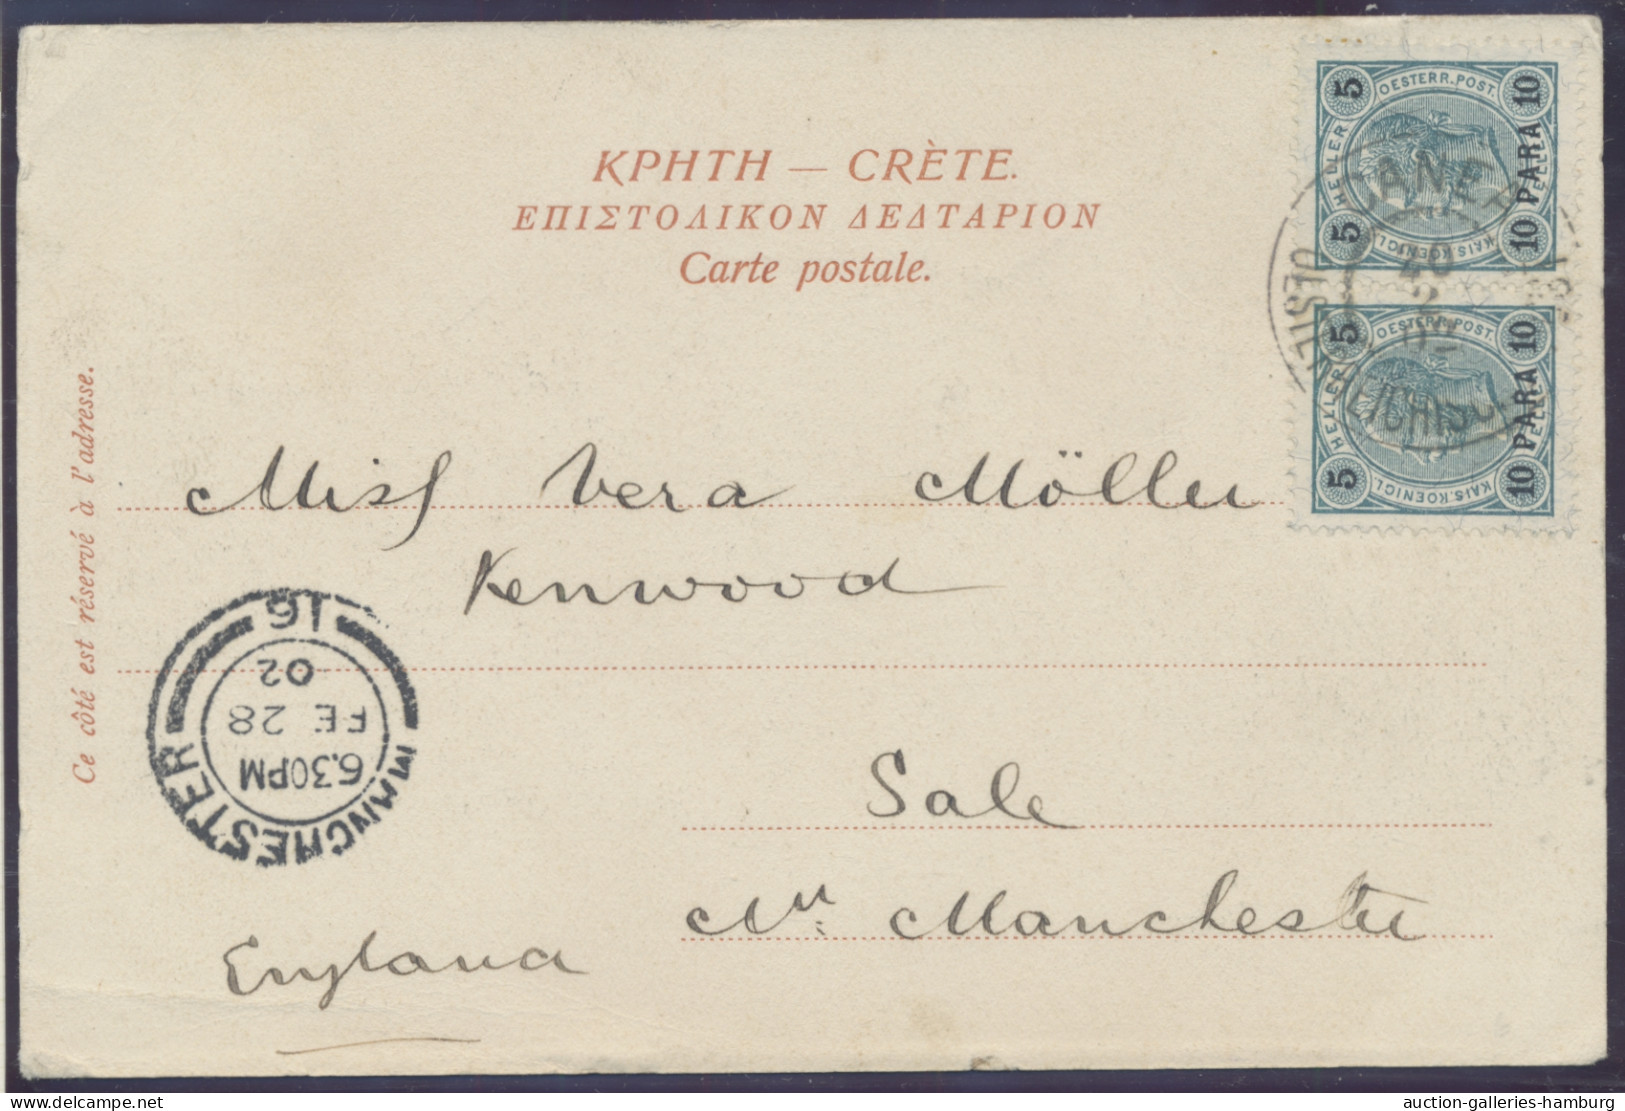 ΚΡΗΤΗ — CRÈTE.
ΕΠΙΣΤΟΛΙΚΟΝ ΔΕΛΤΑΡΙΟΝ
Carte postale.
Ce côté est réservé à l'adresse.
5 OESTERR. POST. 10
HELLER
10 PARA 10
5 KAIS. KOENIGL.
CANEA
5 OESTERR. POST. 10
HELLER
10 PARA 10
5 KAIS. KOENIGL.
Miss Vera Möller
Kenwood
Sale
Nr. Manchester
England
MANCHESTER
6.30PM
FE 28
02
16
auction-galleries-hamburg